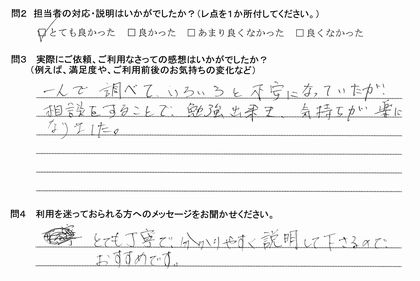 問2 担当者の対応・説明はいかがでしたか？(レ点を1か所付してください。)
☑とても良かった □良かった □あまり良くなかった □良くなかった
問3 実際にご依頼、ご利用なさっての感想はいかがでしたか？
(例えば、満足度や、ご利用前後のお気持ちの変化など)
一人で調べて、いろいろと不安になっていたが、
相談をすることで、勉強出来ま、気持ちが楽に
なりました。
問4 利用を迷っておられる方へのメッセージをお聞かせください。
とても丁寧で、分かりやすく説明して下さるので、
おすすめです。